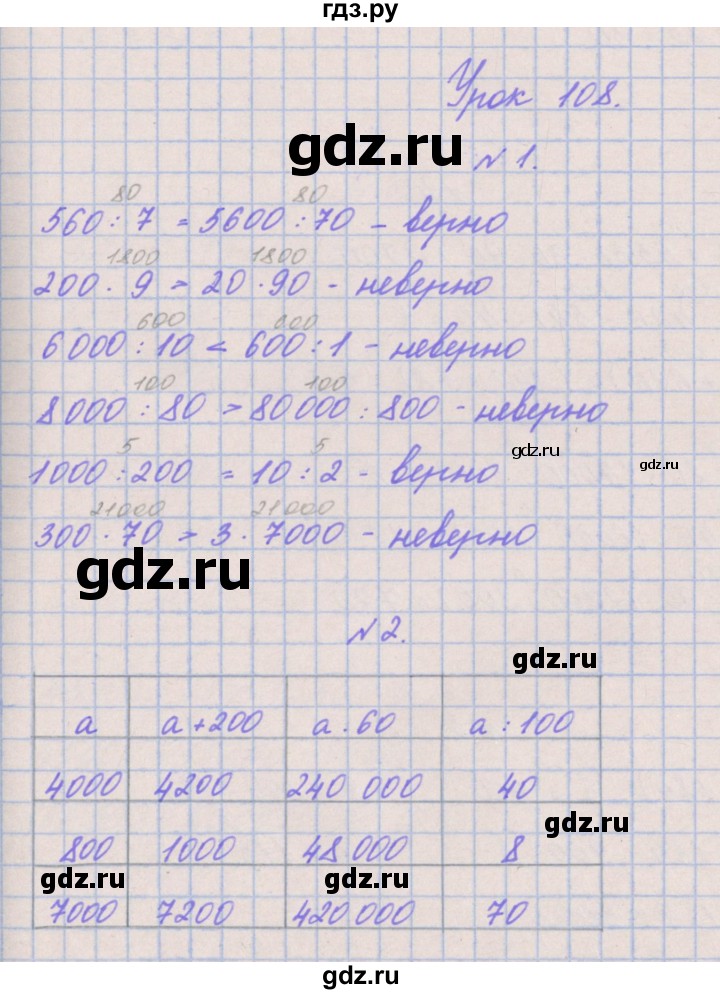 гдз.ру
Урок 108.
gdz.ru
№ 1.
80 80
560 : 7 = 5600 : 70 – верно
1800 1800
200 · 9 > 20 · 90 - неверно
600 600
6000 : 10 < 600 : 1 - неверно
100 100
8000 : 80 > 80000 : 800 - неверно
gdz.ru
gdz.ru
5 5
1000 : 200 = 10 : 2 - верно
21000 21000
300 · 70 > 3 · 7000 - неверно
gdz.ru
№ 2.
gdz.ru
a a+200 a · 60 a : 100
4000 4200 240 000 40
gdz.ru
800 1000 48 000 8
gdz.ru gdz.ru
7000 7200 420 000 70
gdz.ru